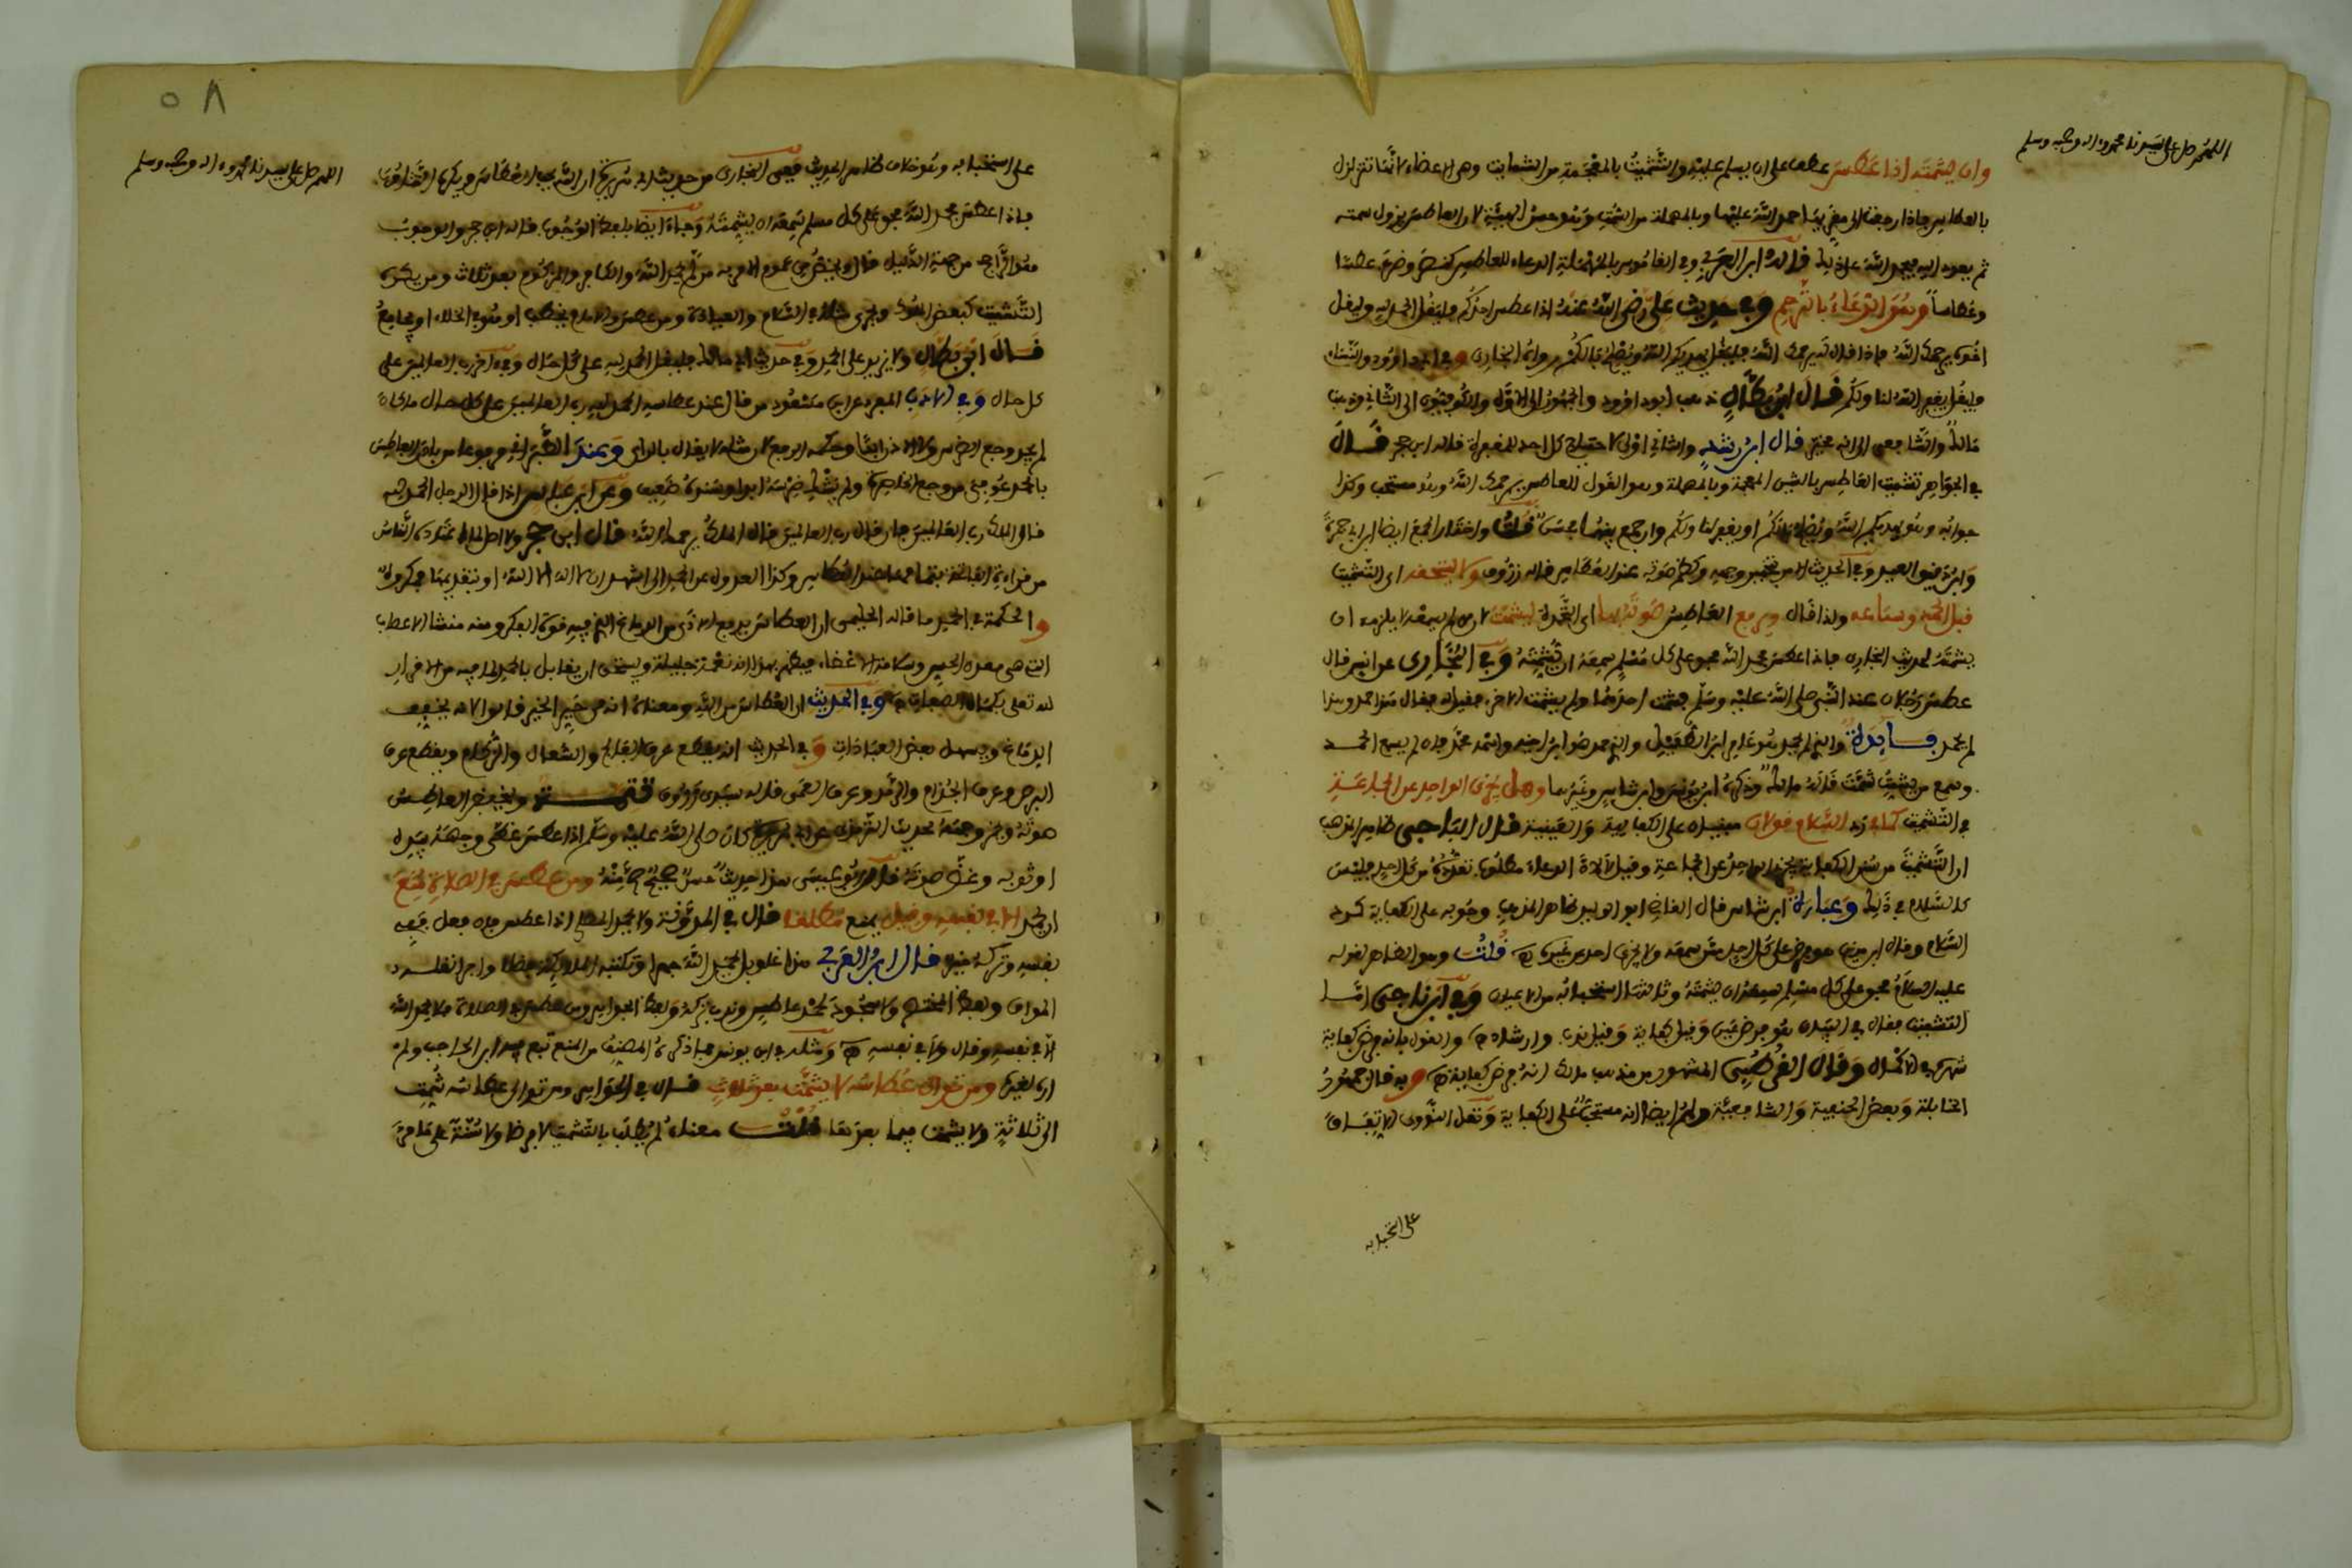 اللهم صل على سيدنا محمد وءاله وصحبه وسلم
وان يشمته اذا عطس عطف على ان يسلم عليه والتشميت بالمعجمة من الشمايت وهى الاعضاء لانها تتزلزل
بالعطاس فاذا رجعت الى مقرها حمد الله عليها وبالمهملة من السمت وهو حسن الهيئة لان العاطس يزول سمته
ثم يعود اليه فيحمد الله على ذلك قاله ابن العربي وفى القاموس بالمهملة الدعاء للعاطس كنصر وضرب عطسا
وعطاسا وهو الدعاء بالترحم وفى حديث على رضى الله عنه اذا عطس احدكم فليقل الحمد لله وليقل
اخوه يرحمك الله فاذا قال له يرحمك الله فليقل يهديكم الله ويصلح بالكم رواه البخارى وفى ابى داوود والنساءى
وليقل يغفر الله لنا ولكم قال ابن بطال ذهب ابو داوود والجمهور الى الاول والكوفيون الى الثانى وذهب
مالك والشافعى الى انه مخير قال ابن رشد والثانى اولى لاحتياج كل احد للمغفرة قاله ابن حجر قال
فى الجواهر تشميت العاطس بالشين المعجمة وبالمهملة وهو القول للعاطس يرحمك الله وهو مستحب وكذا
جوابه وهو يهديكم الله ويصلح بالكم او يغفر لنا ولكم وان جمع بينهما حسن قلت واختار الجمع ايضا ابن ابى جمرة
وابن دقيق العيد وفى الحديث الامر بتخمير وجهه وكظم صوته عند العطاس قاله زروق ولا يستحقه اى التشميت
قبل الحمد وسماعه ولذا قال ويرفع العاطس صوته بها اى الحمدلة ليشمت لان من لم يسمعه لا يلزمه ان
يشمته لحديث البخارى فاذا عطس فحمد الله فحق على كل مسلم سمعه ان يشمته وفى البخارى عن انس قال
عطس رجلان عند النبى صلى الله عليه وسلم فشمت احدهما ولم يشمت الاخر فقيل له فقال هذا حمد وهذا
لم يحمد فايدة والذى لم يحمد هو عامر ابن الطفيل والذى حمد هو ابن اخيه وانه محمد فان لم يسمع الحمد
وسمع من يشمته شمت قاله مالك وذكره ابن يونس وابن شاس وغيرهما وهل يجزى الواحد عن الجماعة
فى التشميت كما فى رد السلام قولان مبنيان على الكفاية والعينية قال الباجى ظاهر المذهب
ان التشميت من سنن الكفاية يجزى الواحد عن الجماعة وقيل لا لان الدعاء مطلوب تعدده من كل احد فليس
كالسلام فى ذلك وعبارة ابن شاس قال القاضى ابو الوليد ظاهر المذهب وجوبه على الكفاية كرد
السلام وقال ابن مزين هو فرض على كل احد ممن سمعه ولا يجزى احد عن غيره قلت وهو الظاهر لقوله
عليه السلام فحق على كل مسلم سمعه ان يشمته وثالثها استحبابه من الاعيان وفى ابن ناجى اما
التشميت فقال فى البيان هو فرض عين وقيل كفاية وقيل ندب وارشاد والقول بانه فرض كفاية
شهره فى الاكمال وقال القرطبى المشهور من مذهب مالك انه فرض كفاية وبه قال جمهور
الحنابلة وبعض الحنفية والشافعية ولهم ايضا انه مستحب على الكفاية ونقل النووى الاتفاق
على استحبابه
٥٨
اللهم صل على سيدنا محمد وءاله وصحبه وسلم
على استحبابه وهو خلاف ظاهر الحديث ففى البخارى من حديث ابى هريرة ان الله يحب العطاس ويكره التثاؤب
فاذا عطس فحمد الله فحق على كل مسلم سمعه ان يشمته وجاء ايضا بلفظ الوجوب قال ابن حجر والوجوب
هو الراجح من جهة الدليل قال ويخص من عموم الامر به من لم يحمد الله والكافر والمزكوم بعد ثلاث ومن يكره
التشميت كبعض الملوك ويجرى مثله فى السلام والعيادة ومن عطس والامام يخطب او هو فى الخلاء او يجامع
قال ابن بطال ولا يزيد على الحمد وفى حديث ابى مالك فليقل الحمد لله على كل حال وفى اخر رب العالمين على
كل حال وفى الادب المفرد عن ابن مسعود من قال عند عطاسه الحمد لله رب العالمين على كل حال ما كان
لم يجد وجع الضرس ولا الاذن ابدا وحكمه الرفع لان مثله لا يقال بالراى وعند الطبرانى مرفوعا من بادر العاطس
بالحمد عوفى من وجع الخاصرة ولم يشك ضرسه ابدا وسنده ضعيف وعن ابن عباس اذا قال الرجل الحمد لله
قال الملك رب العالمين فان قال رب العالمين قال الملك يرحمك الله قال ابن حجر ولا اصل لما اعتاده الناس
من قراءة الفاتحة بتمامها عند العطاس وكذا العدول عن الحمد الى اشهد ان لا اله الا الله او تقديمها فمكروه
والحكمة فى الحمد ما قاله الحليمى ان العطاس يدفع الاذى من الدماغ الذى فيه قوة الفكر ومنه منشا الاعصاب
التى هى معدن الحس وسلامة الاعضاء فيظهر بهذا انه نعمة جليلة ويستحق ان يقابل بالحمد لما فيه من الاقرار
لله تعلى بكمال الصفات وفى الحديث ان العطاس من الله ومعناه انه من خير الخير قالوا لانه يخفف
الدماغ ويسهل بعض العبادات وفى الحديث انه يقطع عرق الفالج والسعال والزكام ويقطع عرق
البرص وعرق الجذام والرمد وعرق العمى قاله سيدى زروق تتمة ويخفض العاطس
صوته ويخمر وجهه لحديث الترمذى عن ابى هريرة كان صلى الله عليه وسلم اذا عطس غطى وجهه بيده
او ثوبه وغض صوته قال ابو عيسى هذا حديث حسن صحيح ومن عطس فى الصلاة منع
ان يحمد الا فى نفسه وقيل يمنع مطلقا قال فى المدونة ولا يحمد المصلى اذا عطس فان فعل ففى
نفسه وتركه خير قال ابن العربى هذا غلو بل يحمد الله جهرا وتكتبه الملائكة فضلا واجرا نقله
المواق ولفظ المختصر ولا محمود لحمد عاطس وندب تركه ولفظ الجواهر ومن عطس فى الصلاة فلا يحمد الله
الا فى نفسه وقال ولا فى نفسه ومثله فى ابن يونس فما ذكره المصنف من المنع تبع فيه ابن الحاجب وله
ارى لغيره ومن توالى عطاسه لا يشمت بعد ثلاث قال فى الجواهر ومن توالى عطاسه شمت
الى ثلاثة ولا يشمت فيما بعدها قلت معناه لم يطلب بالتشميت لا فرضا ولا سنة على ما مر